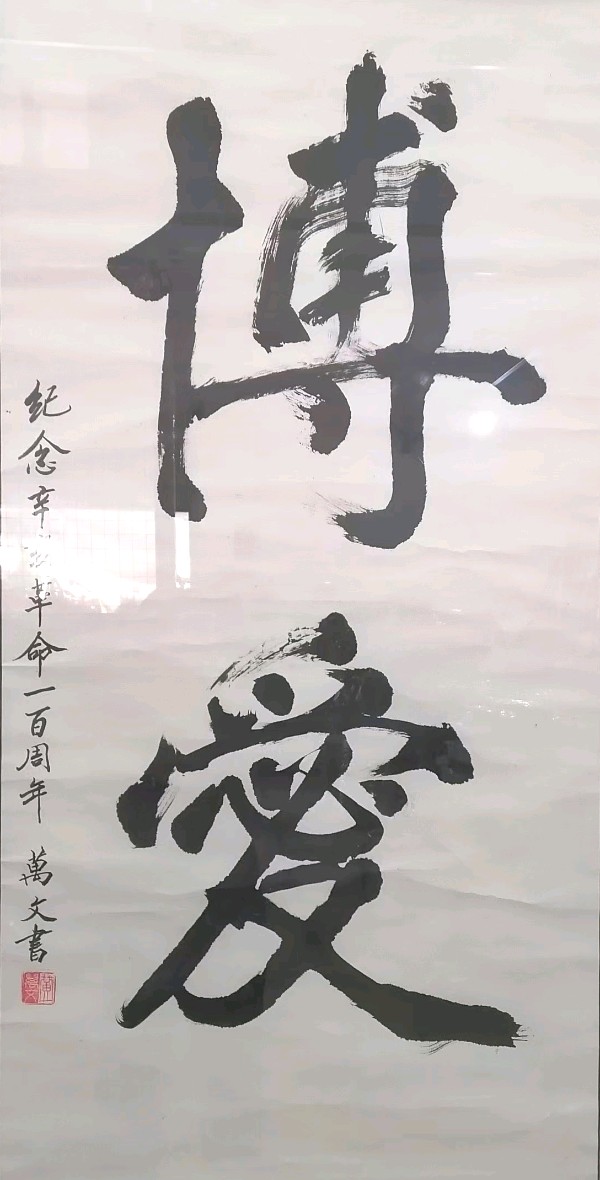 博愛
纪念辛亥革命一百周年 萬文書